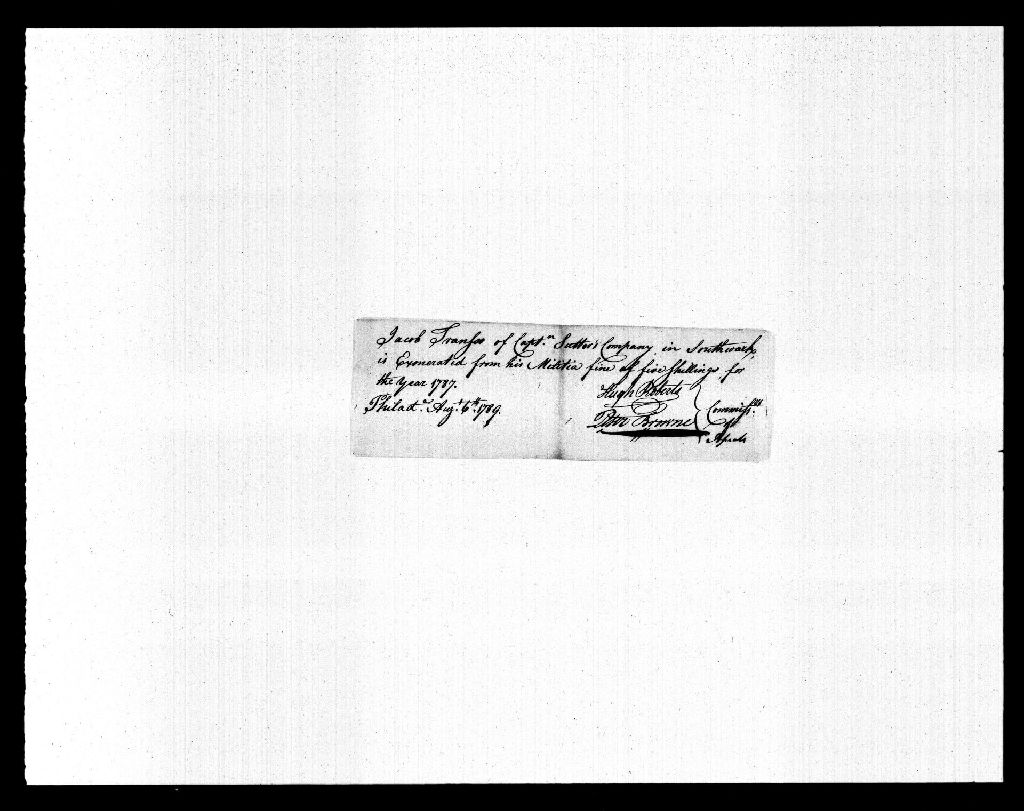 Jacob Transoo of Captn. Sutter's Company in Southwark,
is Exonerated from his Militia fine of five Shillings for
the Year 1787.
Philada. Augt. 6th. 1789.
Hugh Roberts
Peter Browne
Commissrs.
of
Apeals